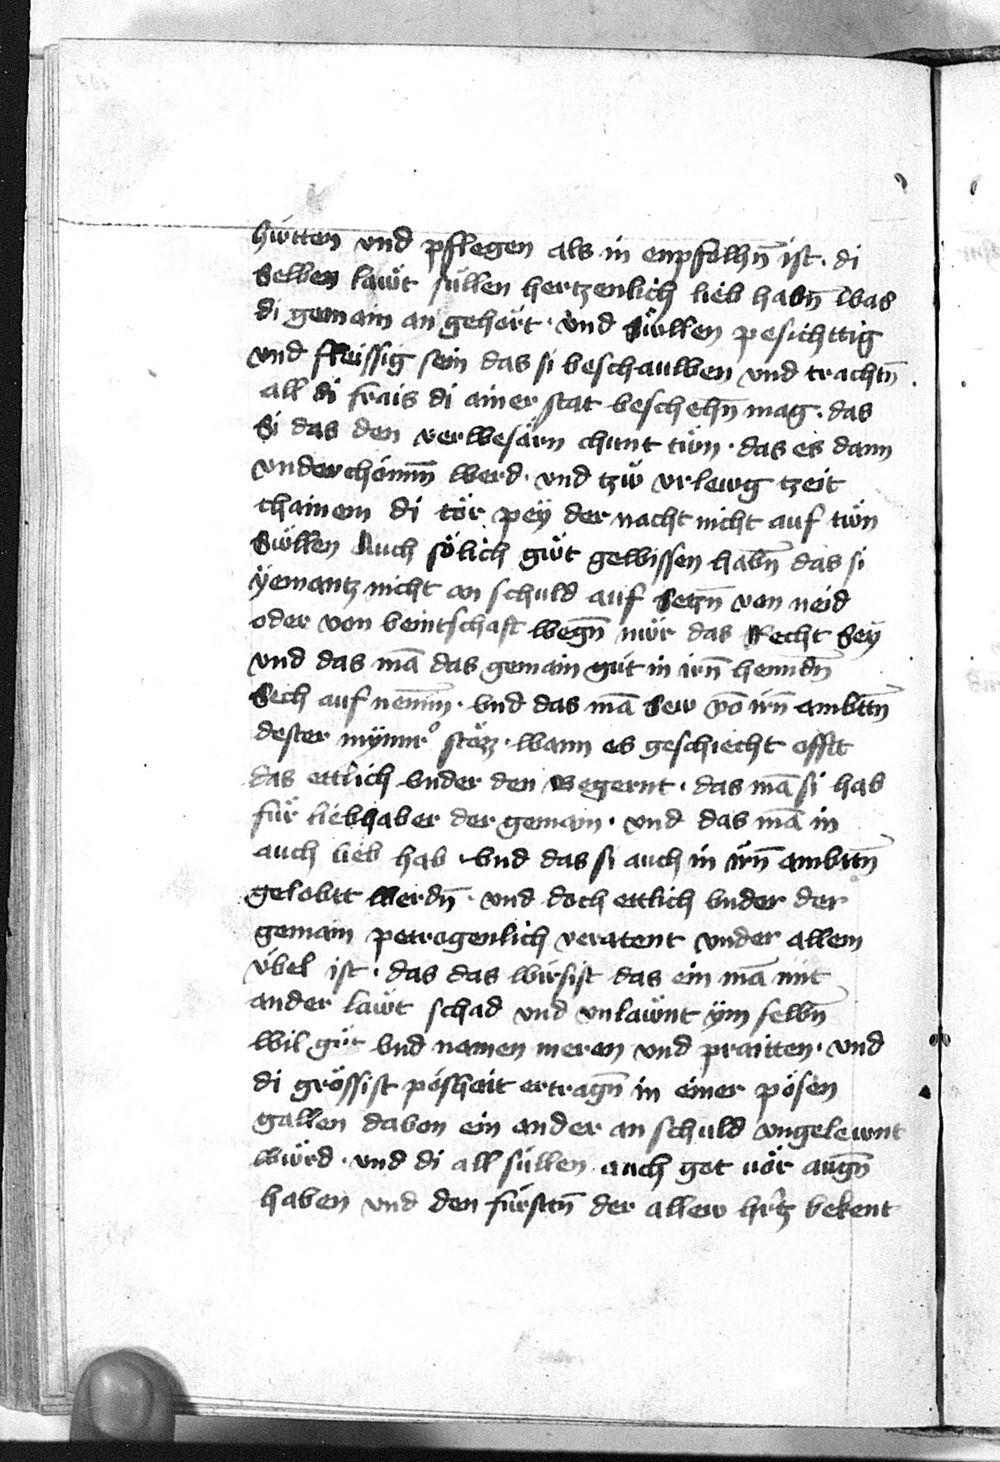 hütten vnd pflegen als in enpfolhn̄ ist · di
Selben lawt süllen hertzenlich lieb habn̄ was
di gemain an gehört · vnd Süllen pesichttig
vnd fleissig sein das si beschawben vnd trachtn̄
all di frais di ainer stat beschehn̄ mag · das
Si das den verwesärn chunt tün · das es dann
vnderchömm̄ werd · vnd tzw vrlewg tzeit
chainem di tör pey der nacht nicht auf tün
Süllen Auch sölich güt gewissen habn̄ das si
yemantz nicht an schuld auf Setzn̄ von neid
oder von veintschaft wegn̄ nwr das Recht Sey
vnd das mā das gemain güt in irn̄ henndn̄
Sech auf nemm̄ · vnd das mā Sew vō irn̄ ambttn̄
dester mynn̄ stözz · wann es geschiecht offtt
das ettlich vnder den Begernt · das mā si hab
für liebhaber der gemain · vnd das mā in
auch lieb hab · vnd das si auch in irn̄ ambttn̄
gelobtt werdn̄ · vnd doch ettlich vnder der
gemain petrogenlich veratent vnder allem
übel ist · das das wirsist das ein mā mit
ander lawt schad vnd vnlawnt ym selbn̄
wil güt vnd namen meren vnd praitten · vnd
di grössist posheit ertragn̄ in einer pösen
gallen davon ein ander an schuld vngelewnt
würd · vnd di all süllen auch got vör augn̄
haben vnd den fürstn̄ der allew hr̄tz bekent